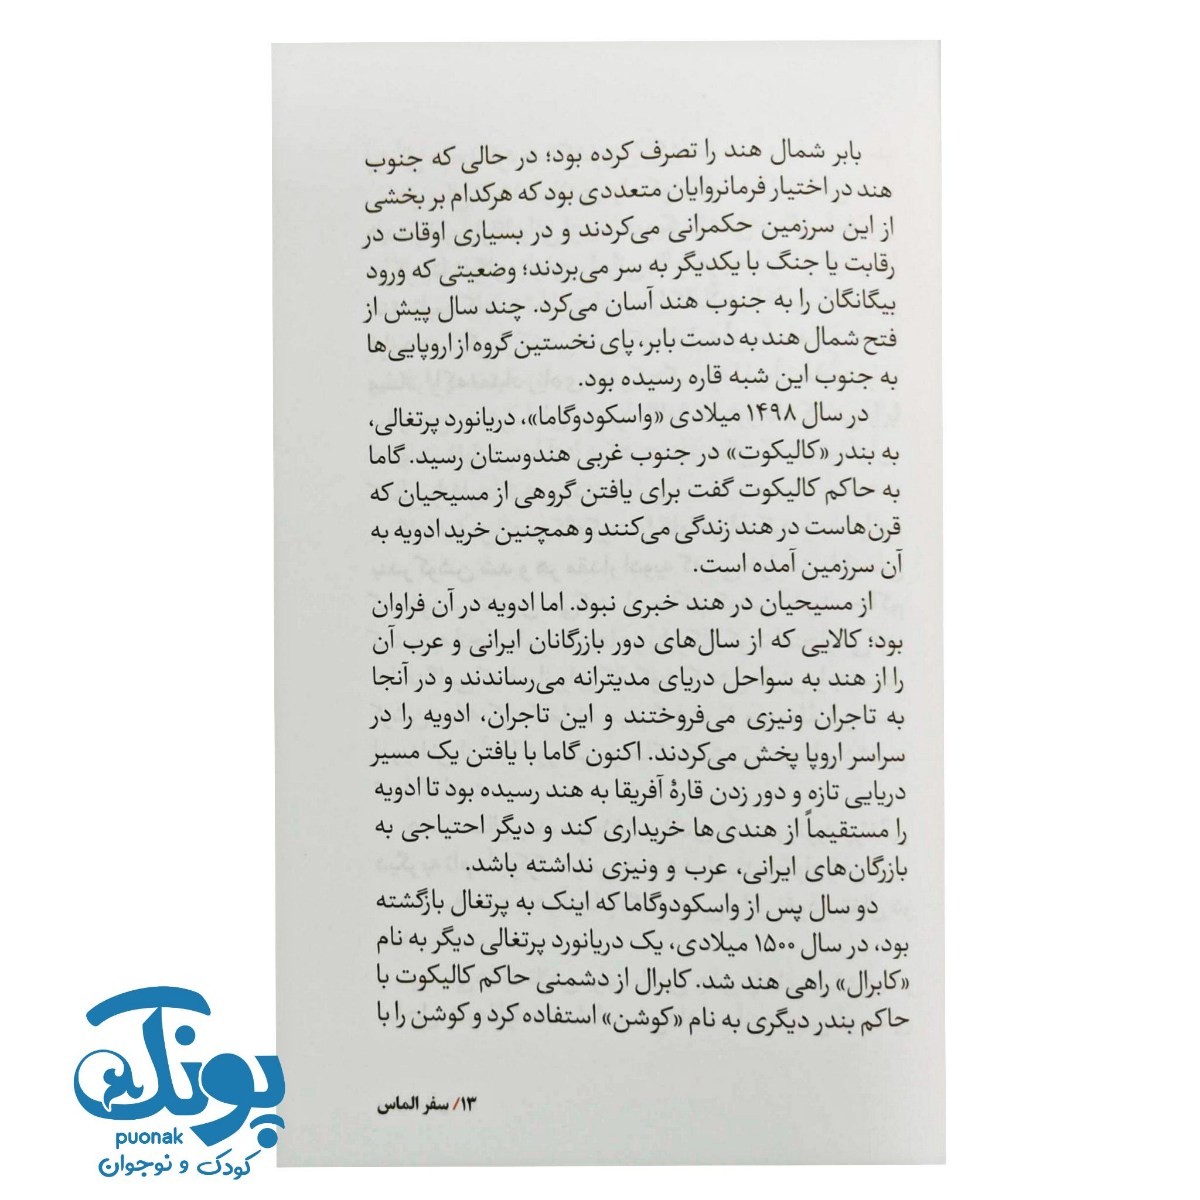 بابر شمال هند را تصرف کرده بود؛ در حالی که جنوب
هند در اختیار فرمانروایان متعددی بود که هرکدام بر بخشی
از این سرزمین حکمرانی می‌کردند و در بسیاری اوقات در
رقابت یا جنگ با یکدیگر به سر می‌بردند؛ وضعیتی که ورود
بیگانگان را به جنوب هند آسان می‌کرد. چند سال پیش از
فتح شمال هند به دست بابر، پای نخستین گروه از اروپایی‌ها
به جنوب این شبه قاره رسیده بود.
در سال ۱۴۹۸ میلادی «واسکودوگاما»، دریانورد پرتغالی،
به بندر «کالیکوت» در جنوب غربی هندوستان رسید. گاما
به حاکم کالیکوت گفت برای یافتن گروهی از مسیحیان که
قرن‌هاست در هند زندگی می‌کنند و همچنین خرید ادویه به
آن سرزمین آمده است.
از مسیحیان در هند خبری نبود. اما ادویه در آن فراوان
بود؛ کالایی که از سال‌های دور بازرگانان ایرانی و عرب آن
را از هند به سواحل دریای مدیترانه می‌رساندند و در آنجا
به تاجران ونیزی می‌فروختند و این تاجران، ادویه را در
سراسر اروپا پخش می‌کردند. اکنون گاما با یافتن یک مسیر
دریایی تازه و دور زدن قارهٔ آفریقا به هند رسیده بود تا ادویه
را مستقیماً از هندی‌ها خریداری کند و دیگر احتیاجی به
بازرگان‌های ایرانی، عرب و ونیزی نداشته باشد.
دو سال پس از واسکودوگاما که اینک به پرتغال بازگشته
بود، در سال ۱۵۰۰ میلادی، یک دریانورد پرتغالی دیگر به نام
«کابرال» راهی هند شد. کابرال از دشمنی حاکم کالیکوت با
حاکم بندر دیگری به نام «کوشن» استفاده کرد و کوشن را با
۱۳/ سفر الماس
پونک
puonak
کودک و نوجوان